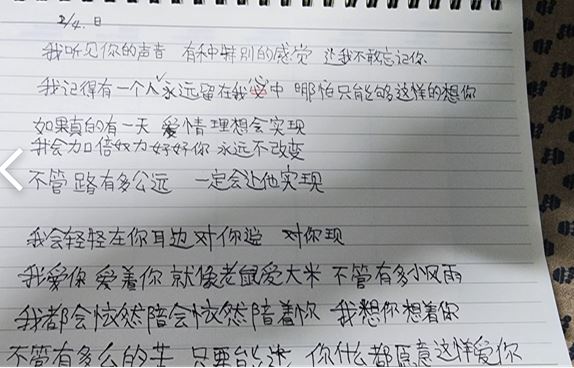 2/4.日
我听见你的声音 有种特别的感觉 让我不敢忘记你
我记得有一个人永远留在我心中 哪怕只能够这样的想你
如果真的有一天 爱情理想会实现
我会加倍努力好好你 永远不改变
不管路有多公远 一定会让他实现
我会轻轻在你耳边对你说 对你现
我爱你 爱着你 就像老鼠爱大米 不管有多小风雨
我都会依然陪会依然陪着你 我想你想着你
不管有多么的苦 只要能 你什么都愿意这样爱你